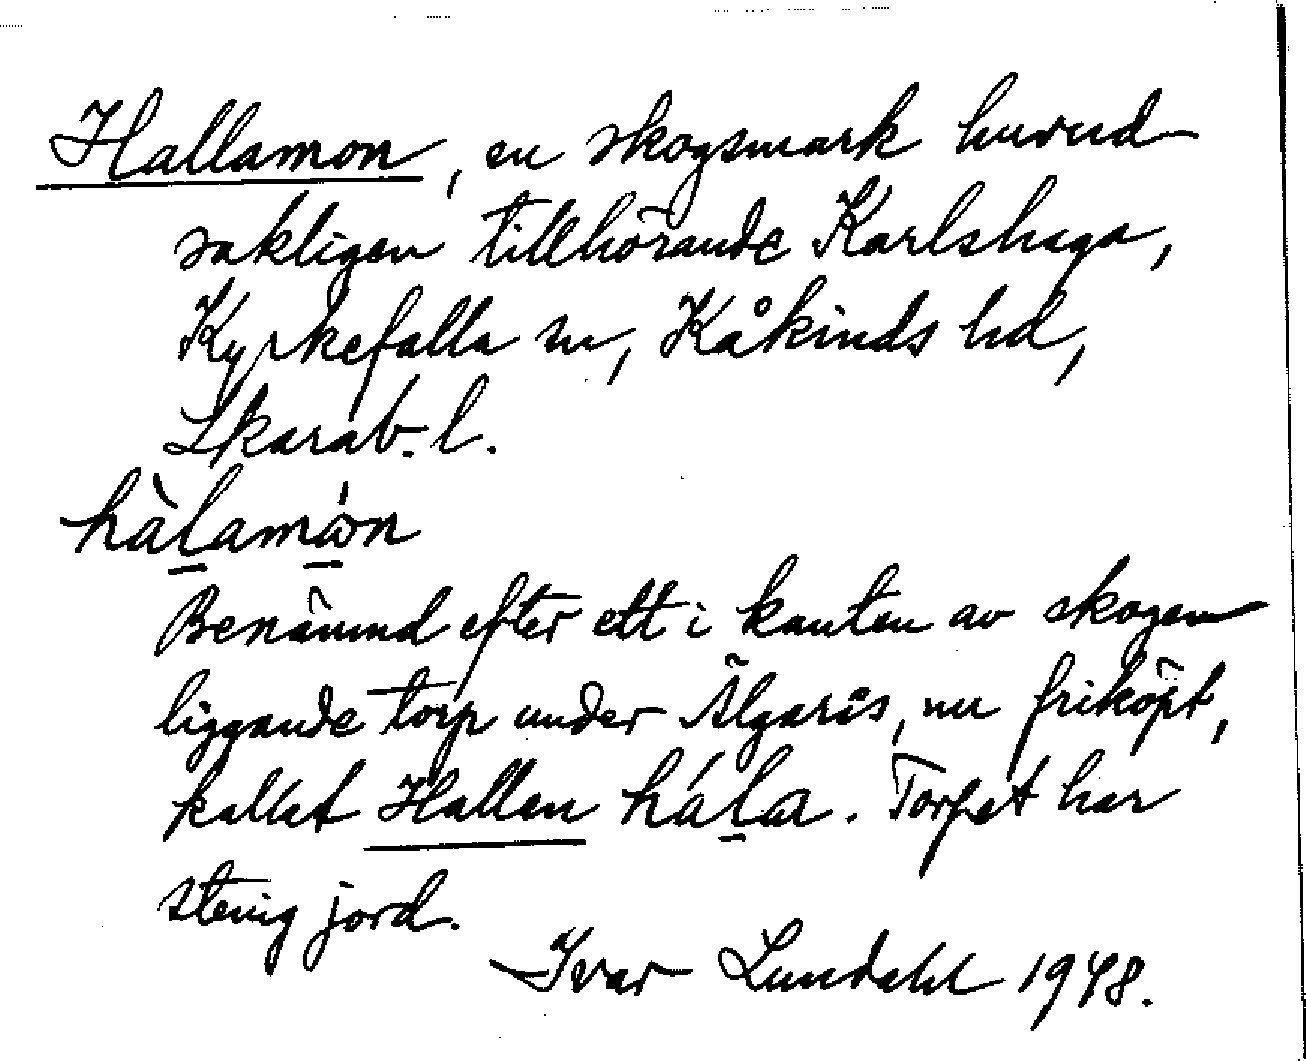 Hallamon, en skogsmark huvud-
sakligen tillhörande Karlshaga,
Kyrkefalla sn, Kåkinds hd,
Skarab. l.
hàl̠amɷ̠́n
Benämnd efter ett i kanten av skogen
liggande torp under Älgarås, nu friköpt,
kallat Hallen hál̠a. Torpet har
stenig jord.
Ivar Lundahl 1948.